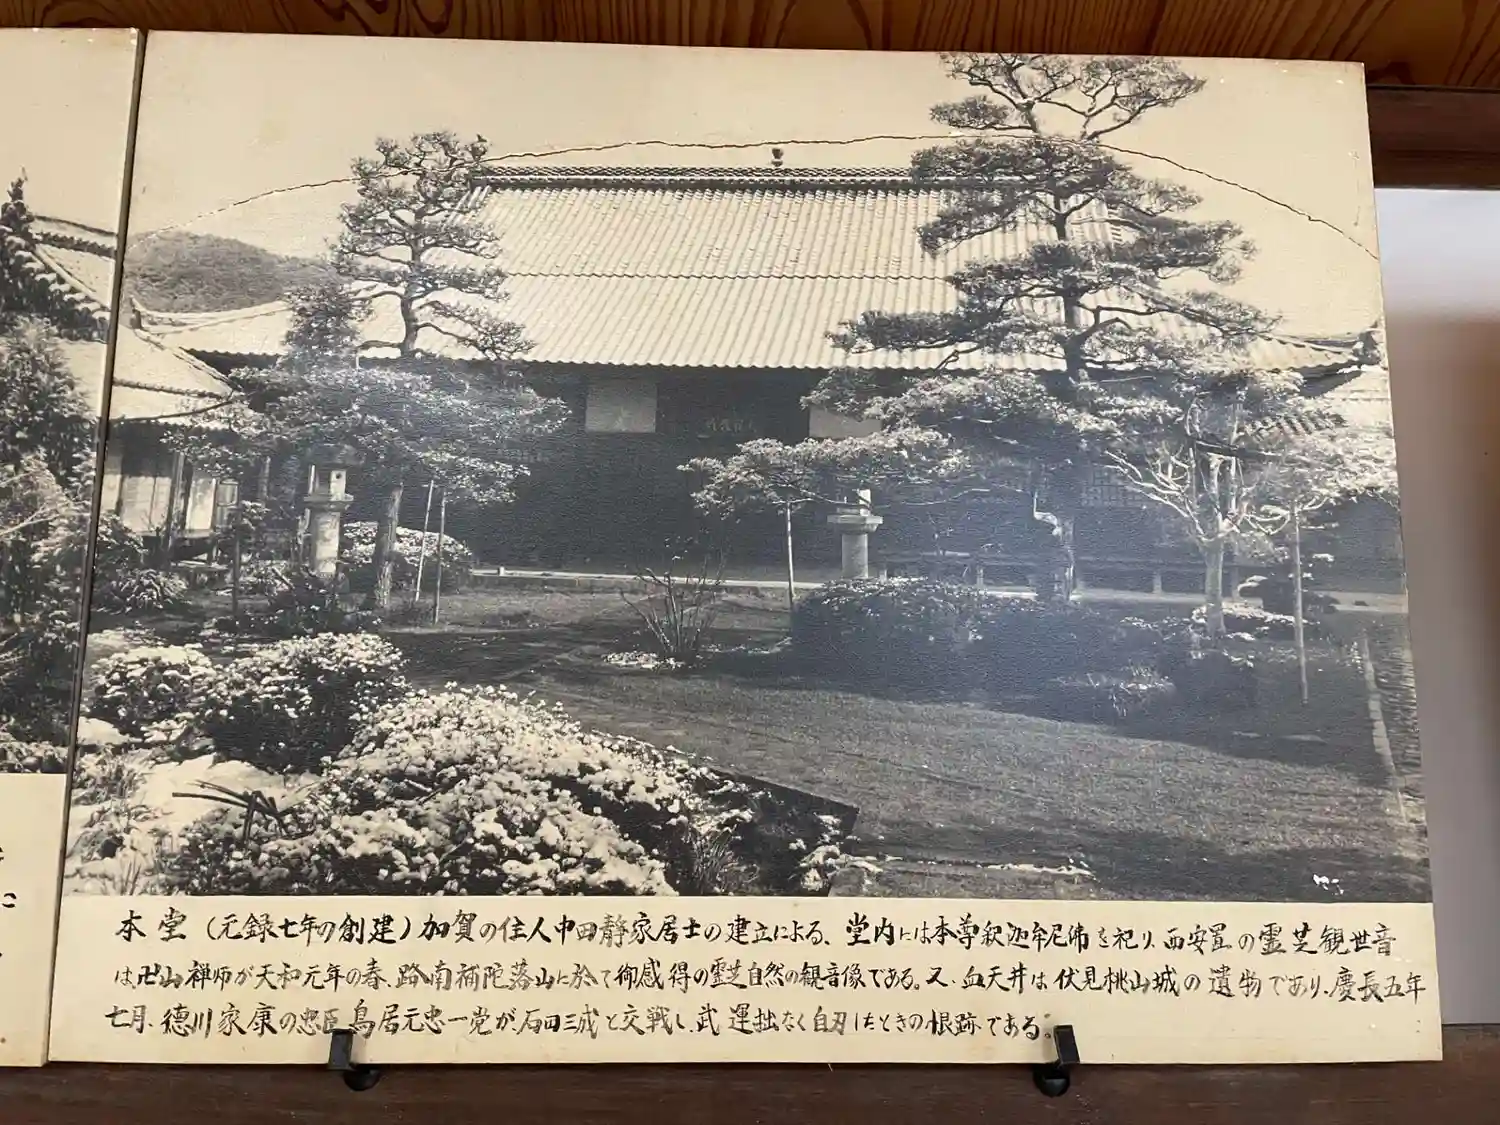 本堂（元録七年の創建）加賀の住人中田静家居士の建立による、堂内には本尊釈迦牟尼佛を祀り西安置の霊芝観世音
は、卍山禅師が天和元年の春、路南補陀落山に於て御感得の霊芝自然の観音像である。又、血天井は伏見桃山城の遺物であり、慶長五年
七月、徳川家康の忠臣鳥居元忠一党が、石田三成と交戦し、武運拙なく自刃したときの根跡である。
に